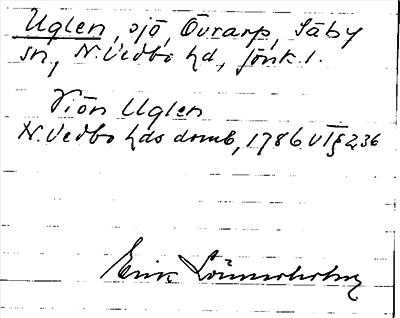 Uglen, sjö, Övrarp, Säby
sn, N. Vedbo hd, Jönk. l.
Siön Uglen
N. Vedbo hds domb, 1786 VT § 236
Erik Lönnerholm